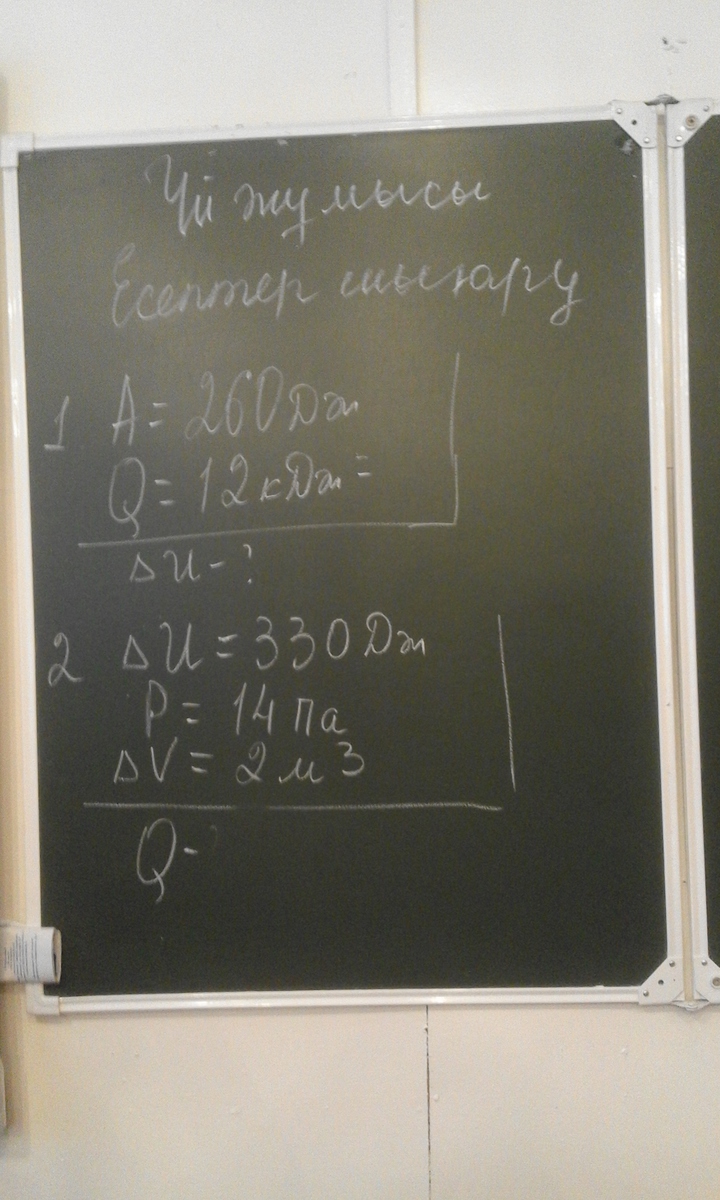 Үй жұмысы
Есептер шығару
1 A = 260 Дж
Q = 12 кДж =
ΔU - ?
2 ΔU = 330 Дж
P = 14 Па
ΔV = 2 м³
Q -